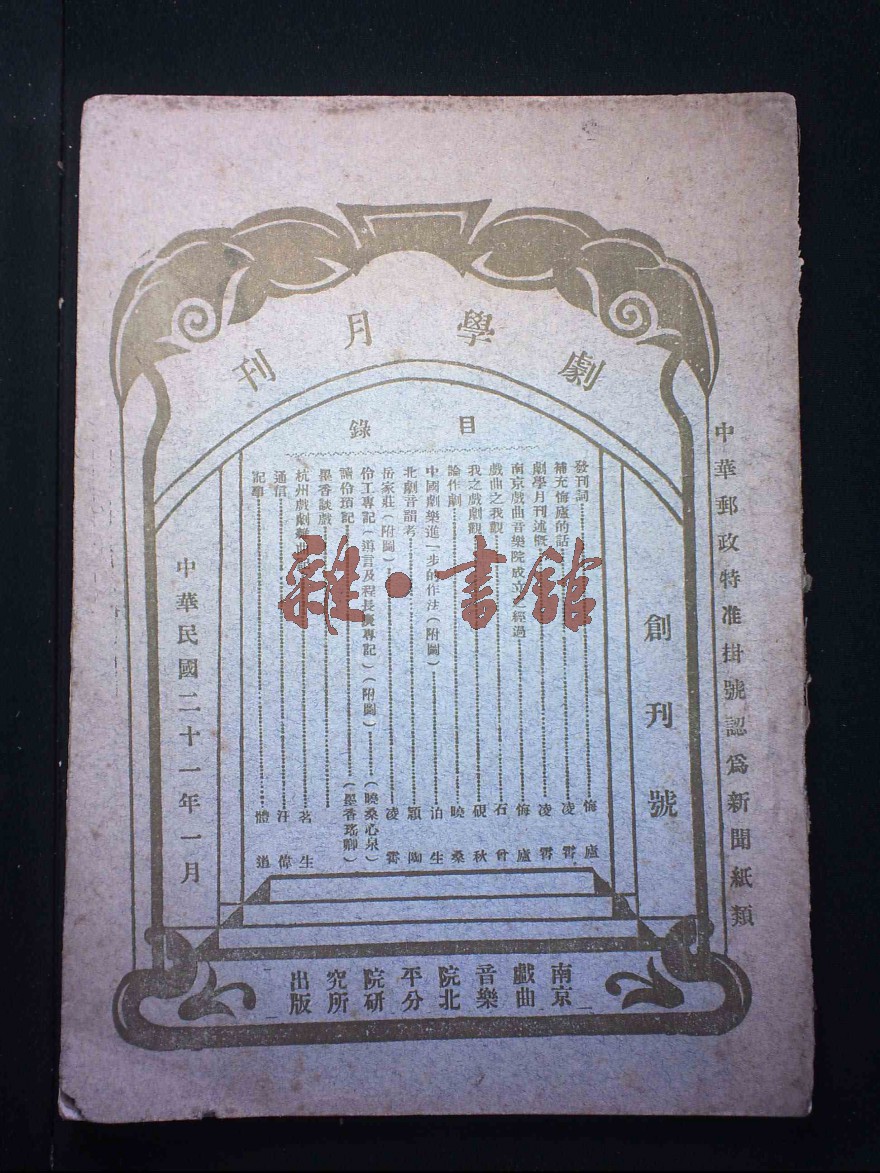 劇學月刊
中華郵政特准掛號認爲新聞紙類
創刊號
目錄
發刊詞 悔廬
補充悔廬的話 凌霄
劇學月刊述概 凌霄
南京戲曲音樂院成立之經過 悔廬
戲曲之我觀 石曾
我之戲劇觀 硯秋
論作劇 曉桑
中國劇樂進一步的作法(附圖) 泊生
北劇音韻考 穎陶
岳家莊(附圖) 凌霄
伶工專記(導言及程長庚專記)(附圖) (曉桑心泉)
讀伶瑣記 (墨香瑤卿)
墨香談戲
杭州戲劇 茗生
通信 汪偉
記事
中華民國二十一年一月
南京戲曲音樂院北平分院研究所出版
雜·書館